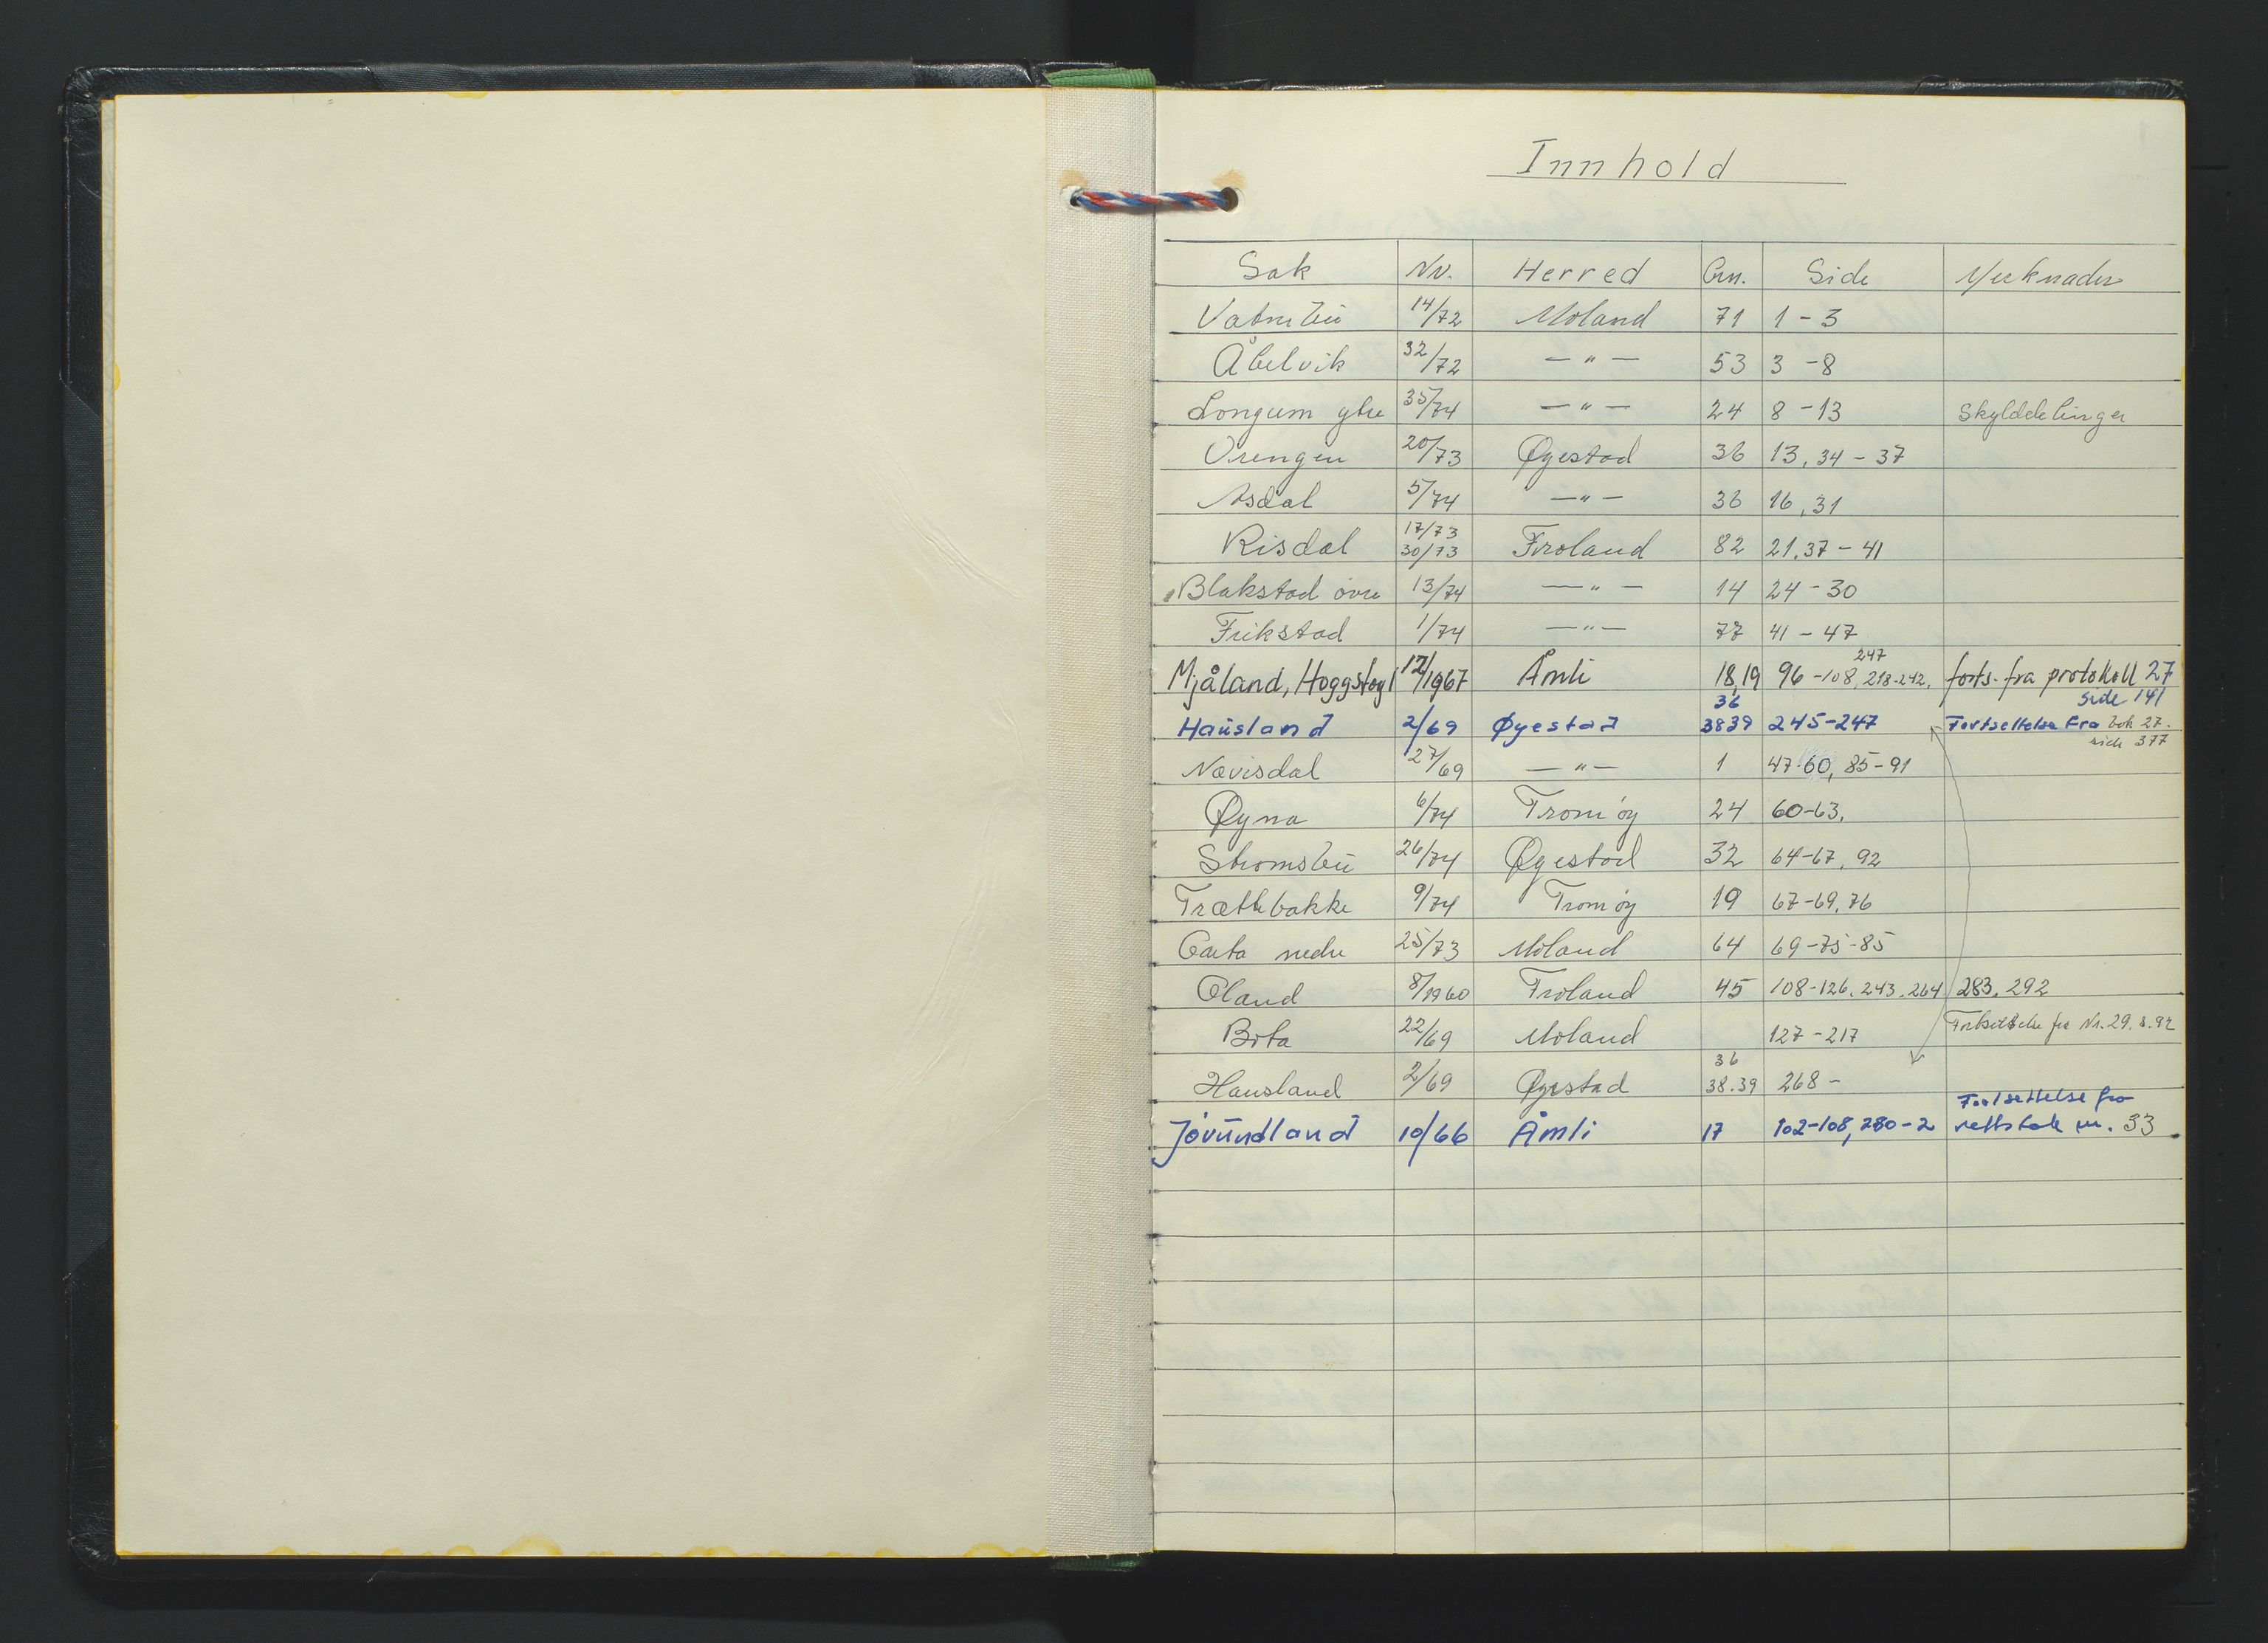 Innhold
Sak Nr. Herred Grn. Side Merknader
Vatnebu 14/72 Moland 71 1-3
Åbelvik 32/72 —"— 53 3-8
Longum ytre 35/74 —"— 24 8-13 Skylddelinger
Vrengen 20/73 Øyestad 36 13, 34-37
Asdal 5/74 —"— 36 16, 31
Risdal 17/73 30/73 Froland 82 21, 37-41
Blakstad øvre 13/74 —"— 14 24-30
Frikstad 1/74 —"— 77 41-47
Mjåland, Hoggstøyl 12/1967 Åmli 18,19 96-108, 218-242, 247 forts. fra protokoll 27 side 141
Hausland 2/69 Øyestad 36 38 39 245-247 Fortsettelse fra bok 27. side 377
Nævisdal 27/69 —"— 1 47-60, 85-91
Øyna 6/74 Tromøy 24 60-63.
Strømsbu 26/74 Øyestad 32 64-67, 92
Trættebakke 9/74 Tromøy 19 67-69, 76
Garta nedre 25/73 Moland 64 69-75-85
Oland 8/1960 Froland 45 108-126, 243, 264 283, 292
Bota 22/69 Moland 127-217 Fortsettelse fra Nr. 29, s. 92
Hausland 2/69 Øyestad 36 38.39 268-
Jovundland 10/66 Åmli 17 102-108, 280-2 Fortsettelse fra rettsbok nr. 33